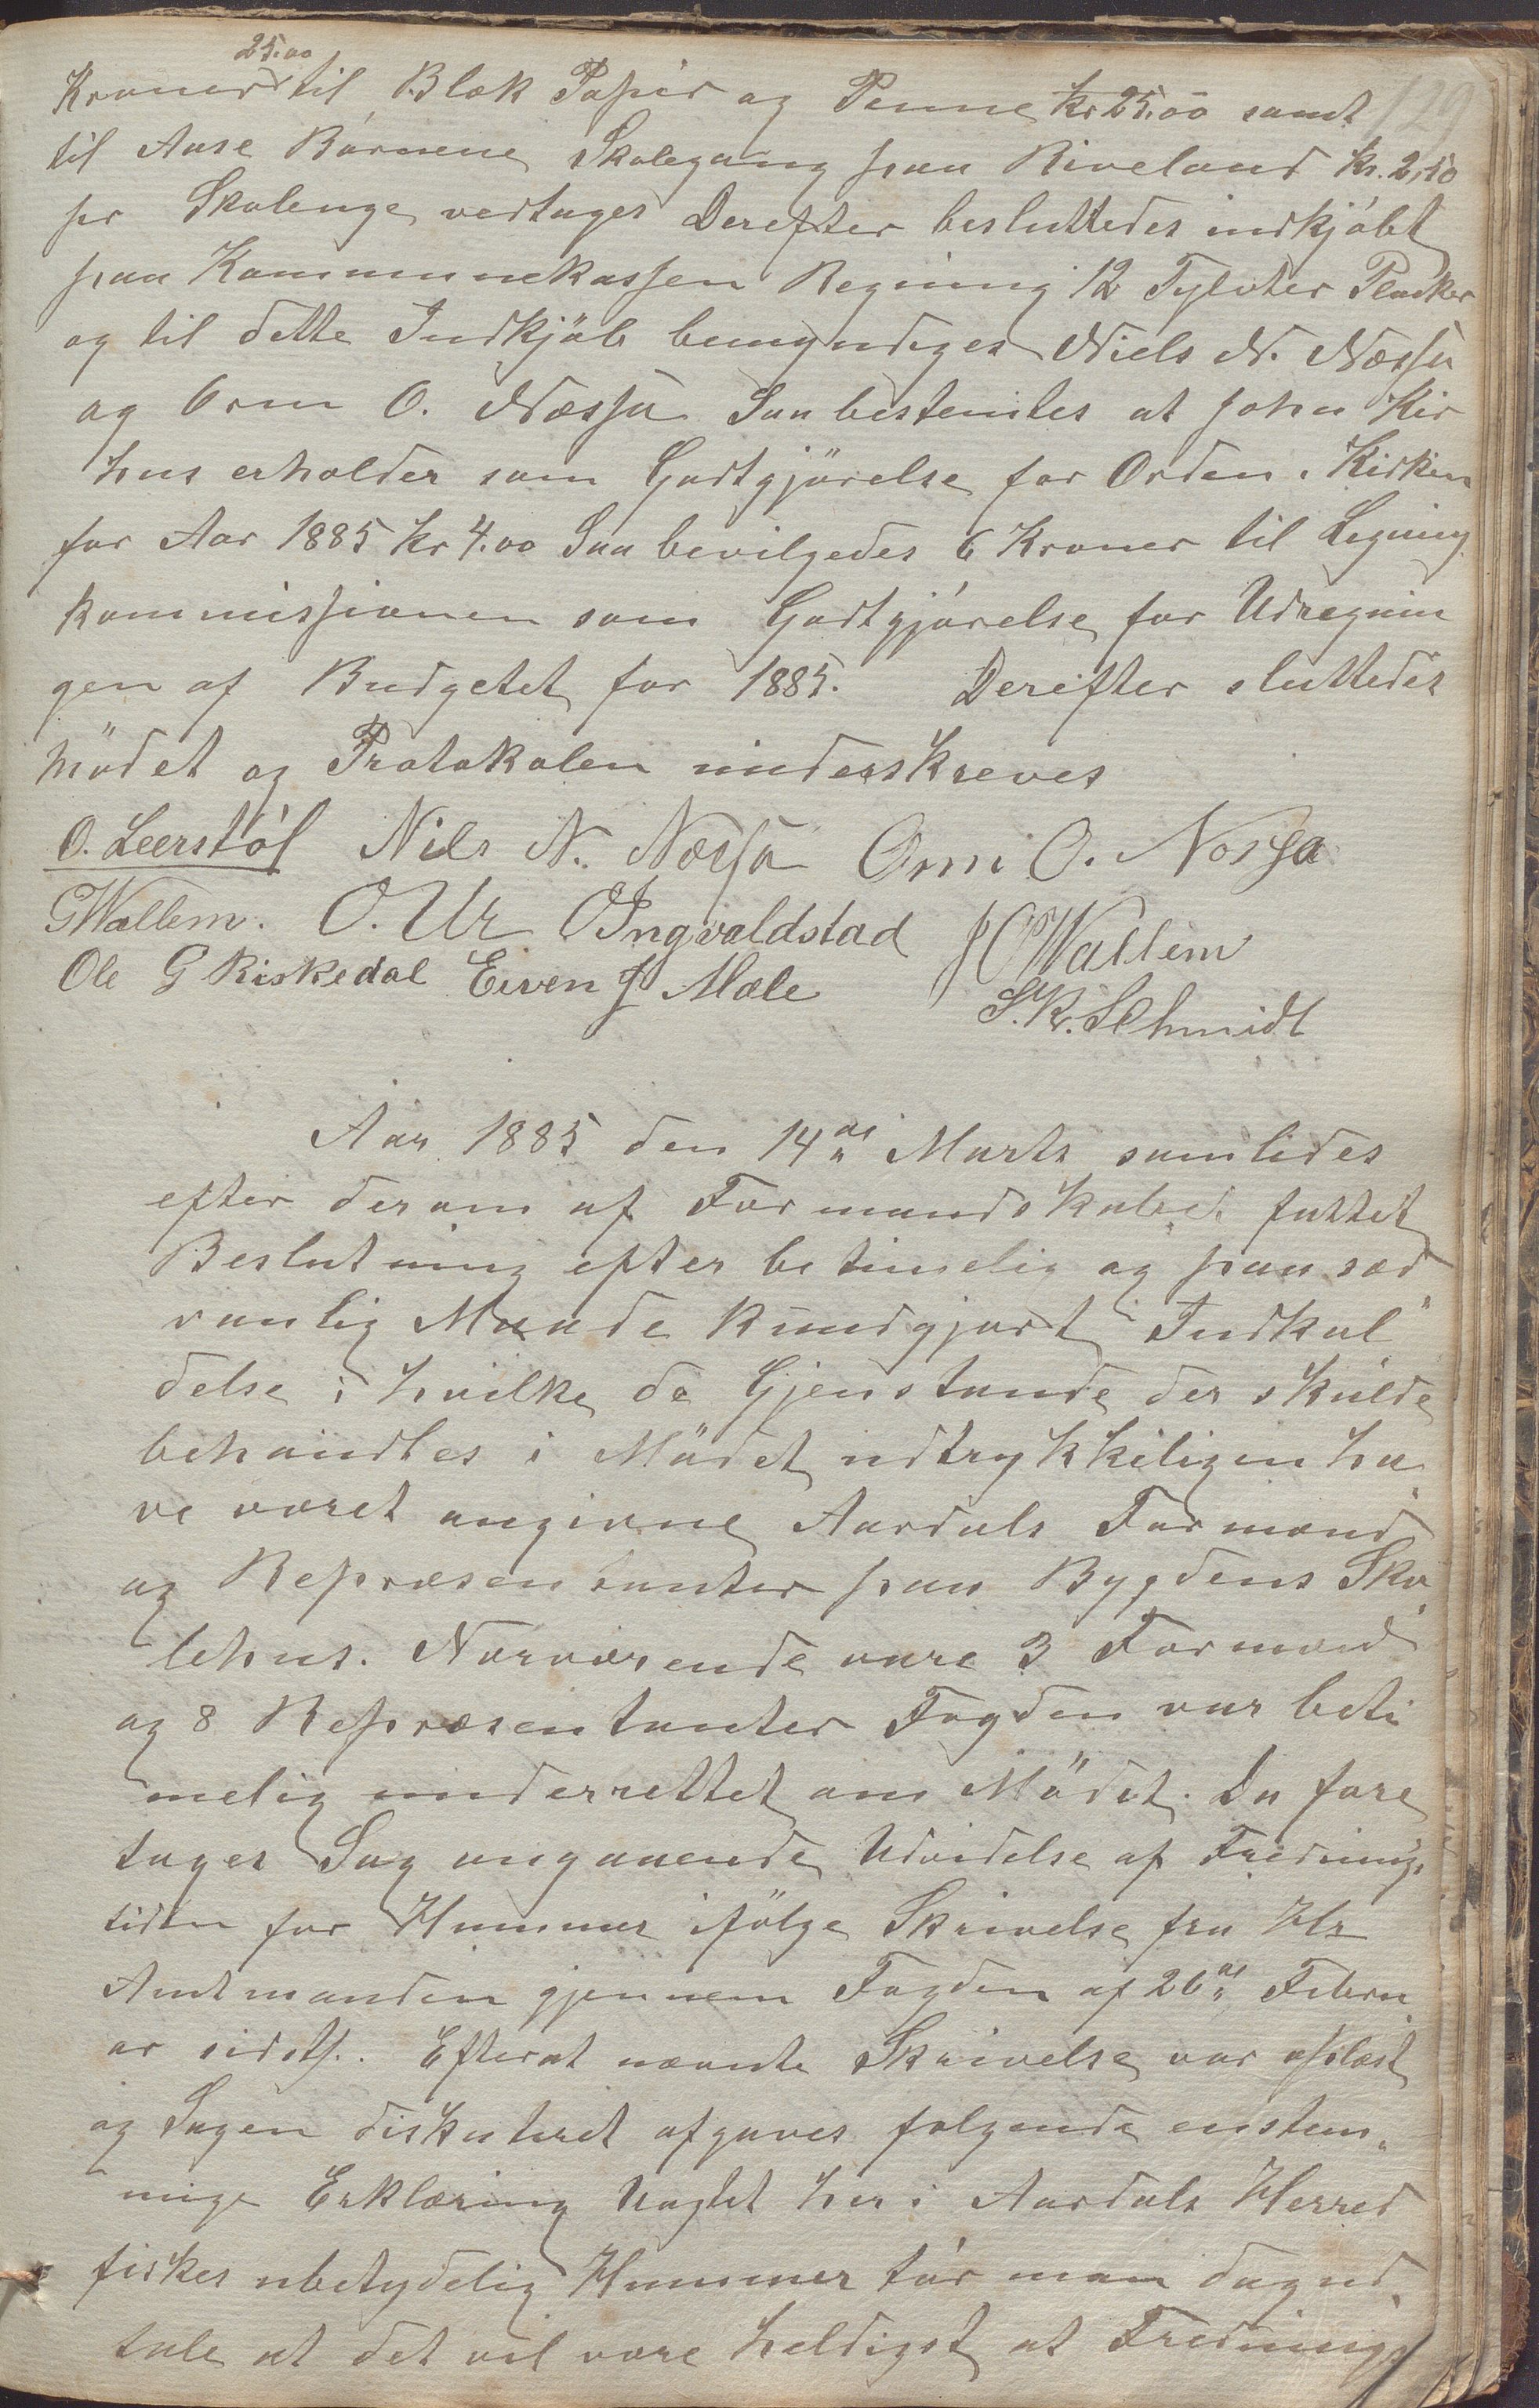 129
25.00
Kroner til Blæk Papir og Penne kr 25.00 samt
til Aase Børnene Skolegang paa Riveland Kr. 2,50
pr Skolenge vedtages Derefter besluttedes indkjøbt
paa Kommunekassen Regning 12 Tylvter Planker
og til dette Indkjøb bemyndiges Niels N. Næssa
og Orm O. Næssa Saa bestemtes at John Kir
hus erholder som Godtgjörelse for Orden i Kirken
for Aar 1885 Kr 4.00 Saa bevilgedes 6 Kroner til Legning
kommissionen som Godtgjørelse for Udregnin
gen af Budgetet for 1885. Derefter sluttedes
mödet og Protokolen underskreves
O. Leerstøl Nils N. Næssa Orm O. Nossa
GWallem. O. Ur OIngvaldstad JOWallem
Ole G Riskedal Eiven J Mæle
S. Kr. Schmidt
Aar 1885 den 14de Marts samledes
efter derom af Formandskabed fattet
Beslutning efter betimelig og paa sæd
vanlig Maade kundgjort Indkal
delse i hvilke de Gjenstande der skulde
behandles i Mödet udtrykkeligen ha
ve været angivne Aardals Formænd
og Repræsentanter paa Bygdens Sko
lehus. Nærværende vare 3 Formænd
og 8 Repræsentanter Fogden var beti
melig underrettet om Mödet. Da fore
tages Sag angaaende Udvidelse af Fredning,
tiden for Hummer ifölge Skrivelse fra Hr
Amtmanden gjennem Fogden af 26de Febru
ar sidstl. Efterat nævnte Skrivelse var oplæst
og Sagen diskuteret afgaves følgende enstem„
mige Erklæring Uagtet her i Aardals Herred
fiskes ubetydelig Hummer tør man dog ud„
tale at det vil være heldigst at Frednings